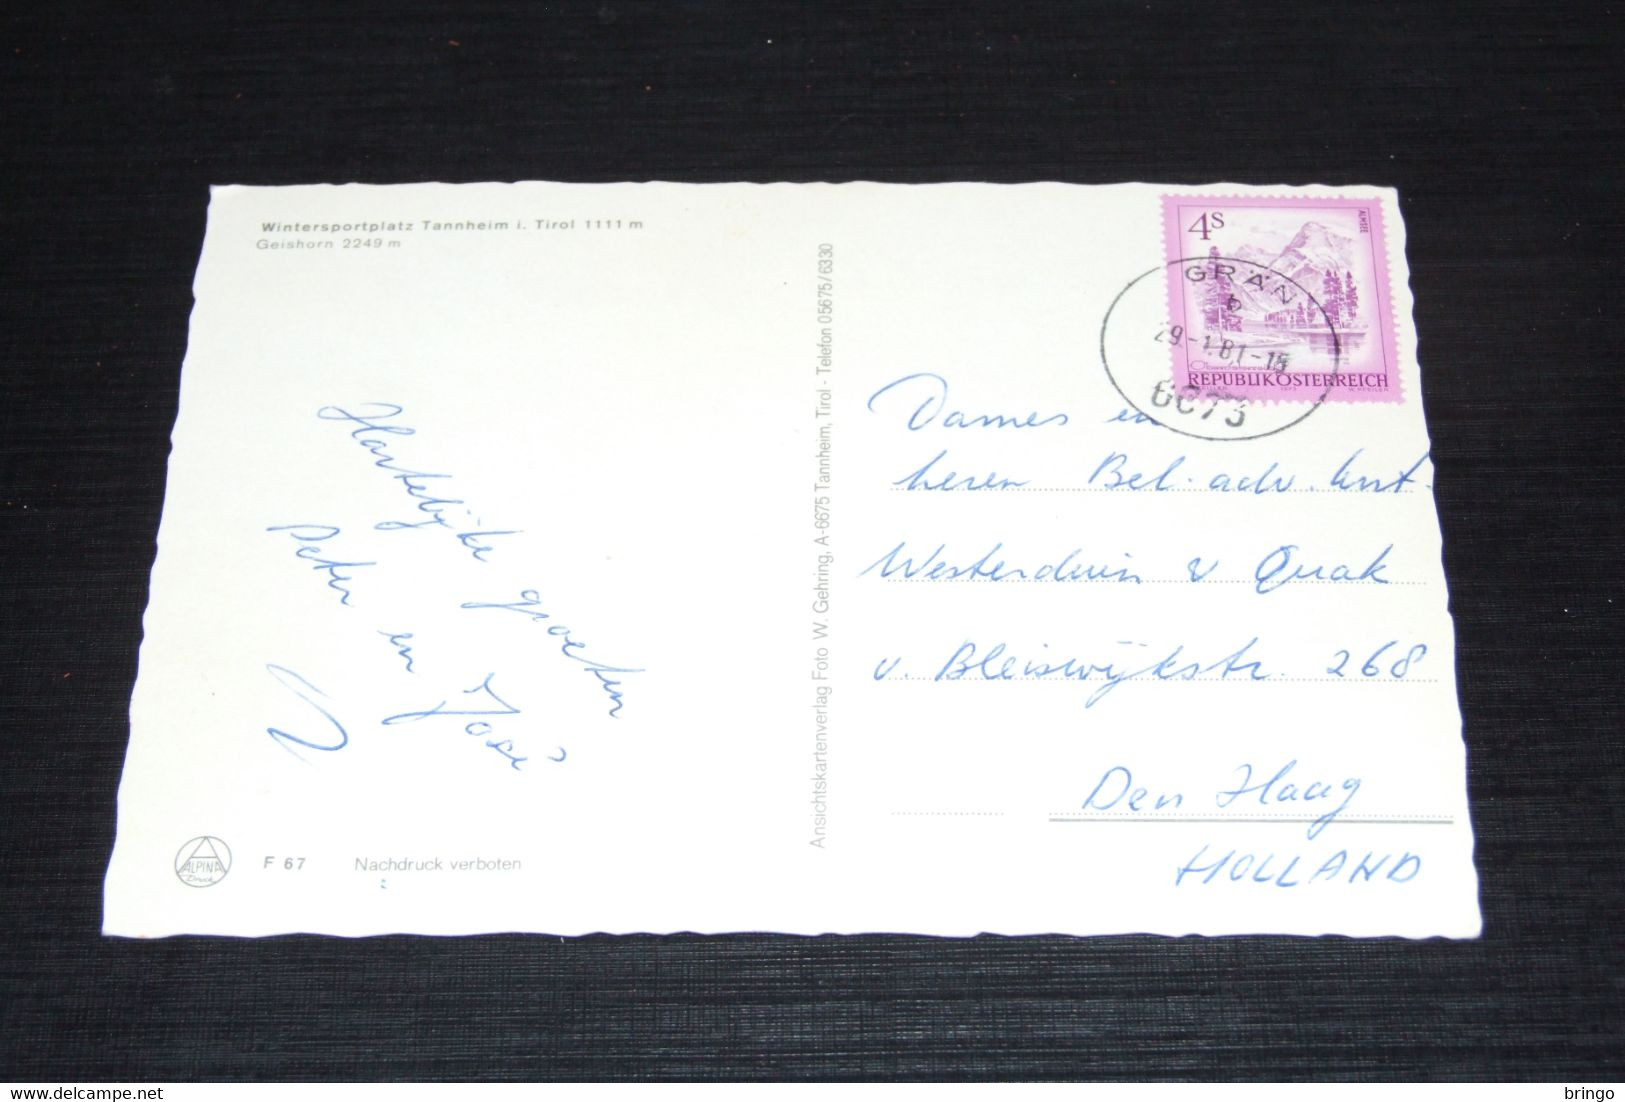 Wintersportplatz Tannheim i. Tirol 1111 m
Geishorn 2249 m
Hartelijke groeten
Peter en José
ALPINA
Druck
F 67 Nachdruck verboten
Ansichtskartenverlag Foto W. Gehring, A-6675 Tannheim, Tirol · Telefon 05675/6330
4S
ALMSEE
REPUBLIK ÖSTERREICH
GRÄN
b
29.-1.81-18
6673
Dames en
heren Bel. adv. knt.
Westerduin v Quak
v. Bleiswijkstr. 268
Den Haag
HOLLAND
bringo